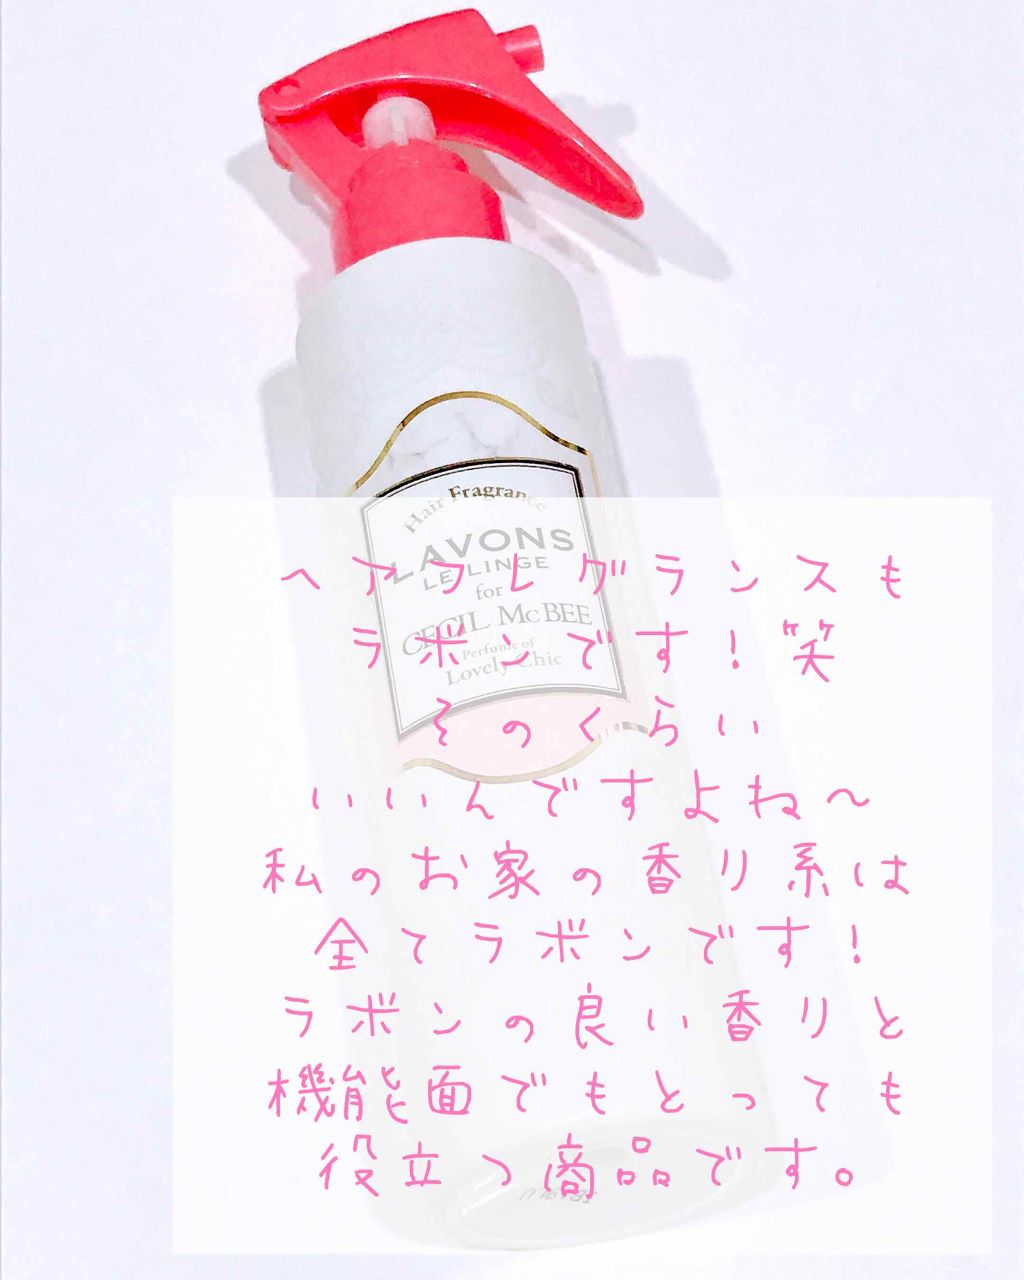 Hair Fragrance
LAVONS
LE LINGE
for
CECIL McBEE
Perfume of
Lovely Chic
ヘアフレグランスも
ラボンです！笑
そのくらい
いいんですよね〜
私のお家の香り系は
全てラボンです！
ラボンの良い香りと
機能面でもとっても
役立つ商品です。